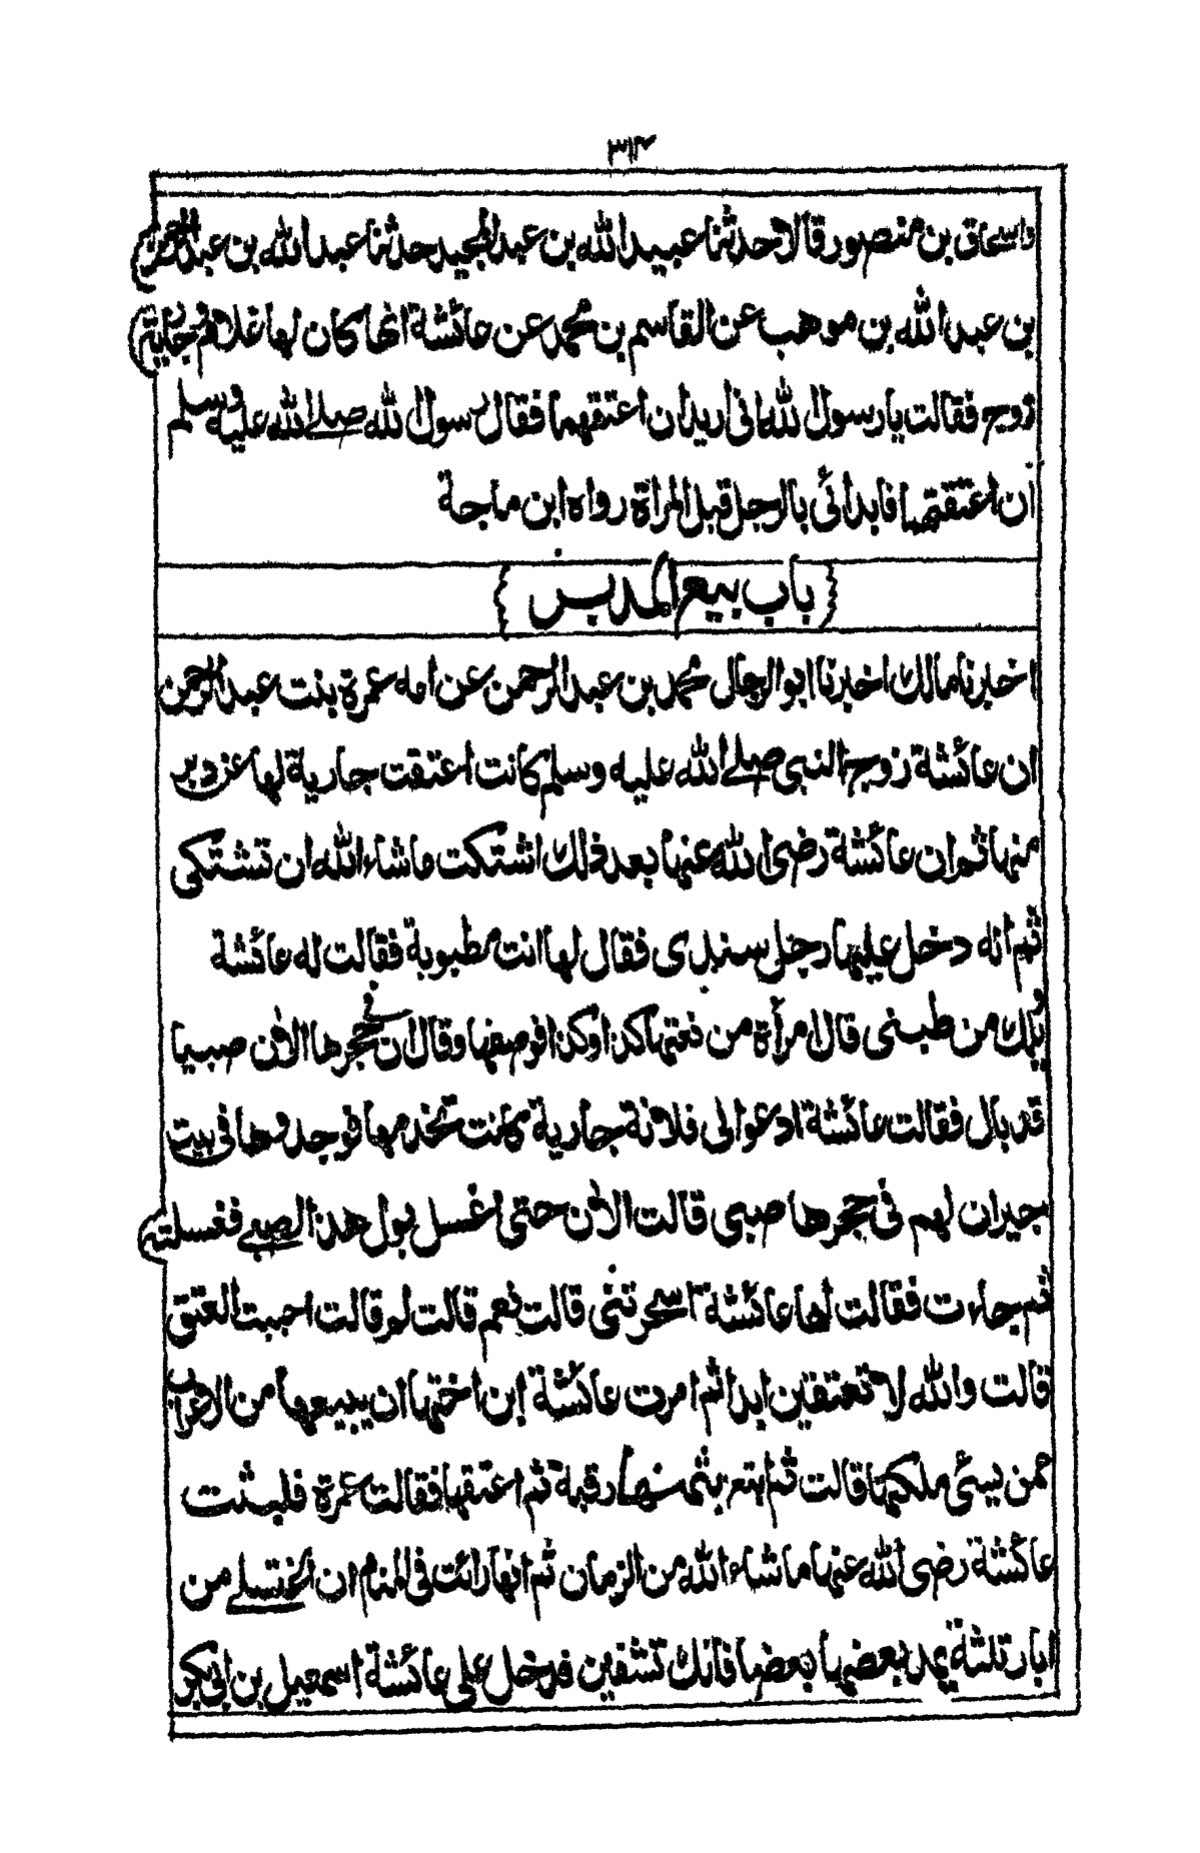 ٣١٣
واسحاق بن منصور قالا حدثنا عبيد الله بن عبد المجيد حدثنا عبد الله بن عبد الرحمن
بن عبد الله بن موهب عن القاسم بن محمد عن عائشة انها كان لها غلام وجارية
زوج فقالت يا رسول الله انى اريد ان اعتقهما فقال رسول الله صلے الله عليه وسلم
ان اعتقتهما فابدائى بالرجل قبل المراة رواه ابن ماجة
{ باب بيع المدبر }
اخبرنا مالك اخبرنا ابو الرجال محمد بن عبد الرحمن عن امه عمرة بنت عبد الرحمن
ان عائشة زوج النبى صلے الله عليه وسلم كانت اعتقت جارية لها عن دبر
منها ثم ان عائشة رضى الله عنها بعد ذلك اشتكت ما شاء الله ان تشتكى
ثم انه دخل عليها رجل سندى فقال لها انت مطبوبة فقالت له عائشة
ويلك من طبنى قال امرأة من نعتها كذا وكذا فوصفها وقال ان فى حجرها الأن صبيا
قد بال فقالت عائشة ادعوا لى فلانة جارية كانت تخدمها فوجدوها فى بيت
جيران لهم فى حجرها صبى قالت الأن حتى اغسل بول هذا الصبے فغسلته
ثم جاءت فقالت لها عائشة اسحرتنى قالت نعم قالت لم قالت احببت العتق
قالت والله لا تعتقين ابدا ثم امرت عائشة ابن اختها ان يبيعها من الاعراب
ممن يسئى ملكتها قالت ثم ابتع بثمنها رقبة ثم اعتقها فقالت عمرة فلبثت
عائشة رضى الله عنها ما شاء الله من الزمان ثم انها رائت فى المنام ان اغتسلے من
ابار ثلثة يمد بعضها بعضا فانك تشفين فدخل على عائشة اسمعيل بن ابى بكر